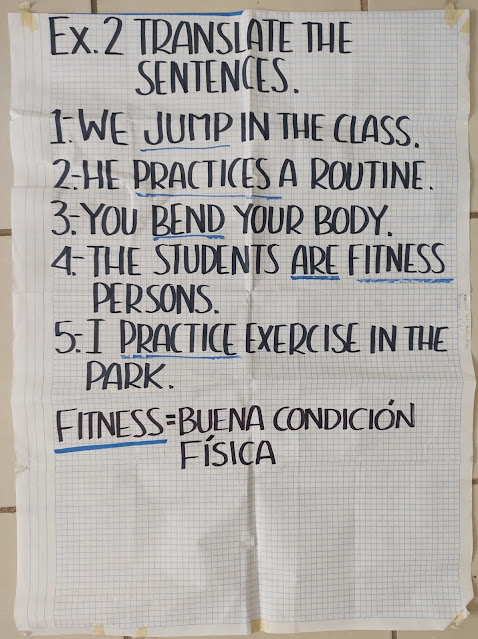 Ex. 2 TRANSLATE THE
SENTENCES.
1:- WE JUMP IN THE CLASS.
2:- HE PRACTICES A ROUTINE.
3:- YOU BEND YOUR BODY.
4:- THE STUDENTS ARE FITNESS
PERSONS.
5:- I PRACTICE EXERCISE IN THE
PARK.
FITNESS = BUENA CONDICIÓN
FÍSICA